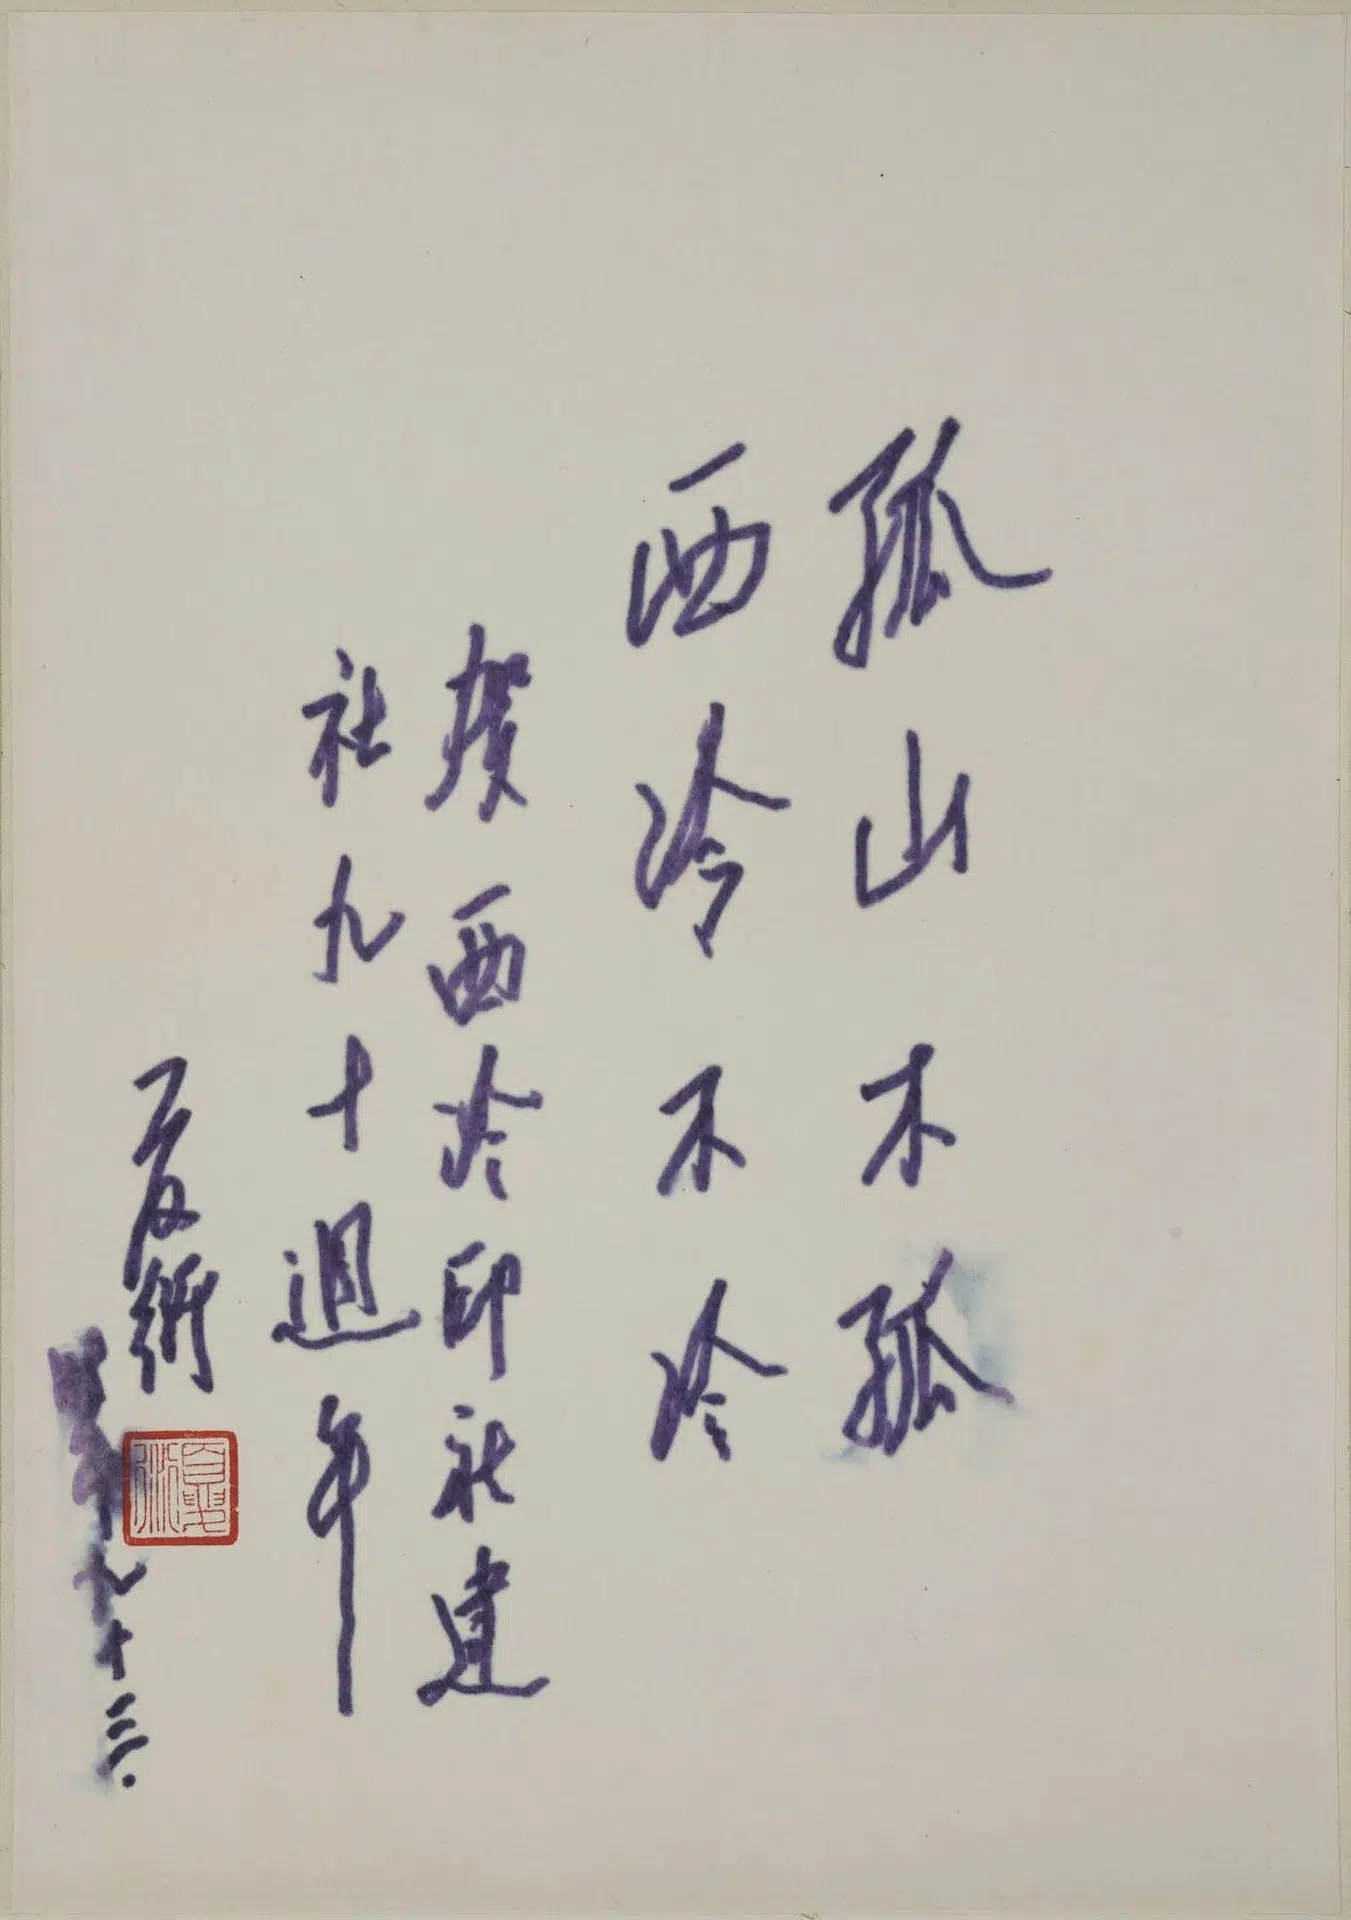 孤山不孤
西泠不冷
贺西泠印社建
社九十週年
夏衍
九十三
夏衍